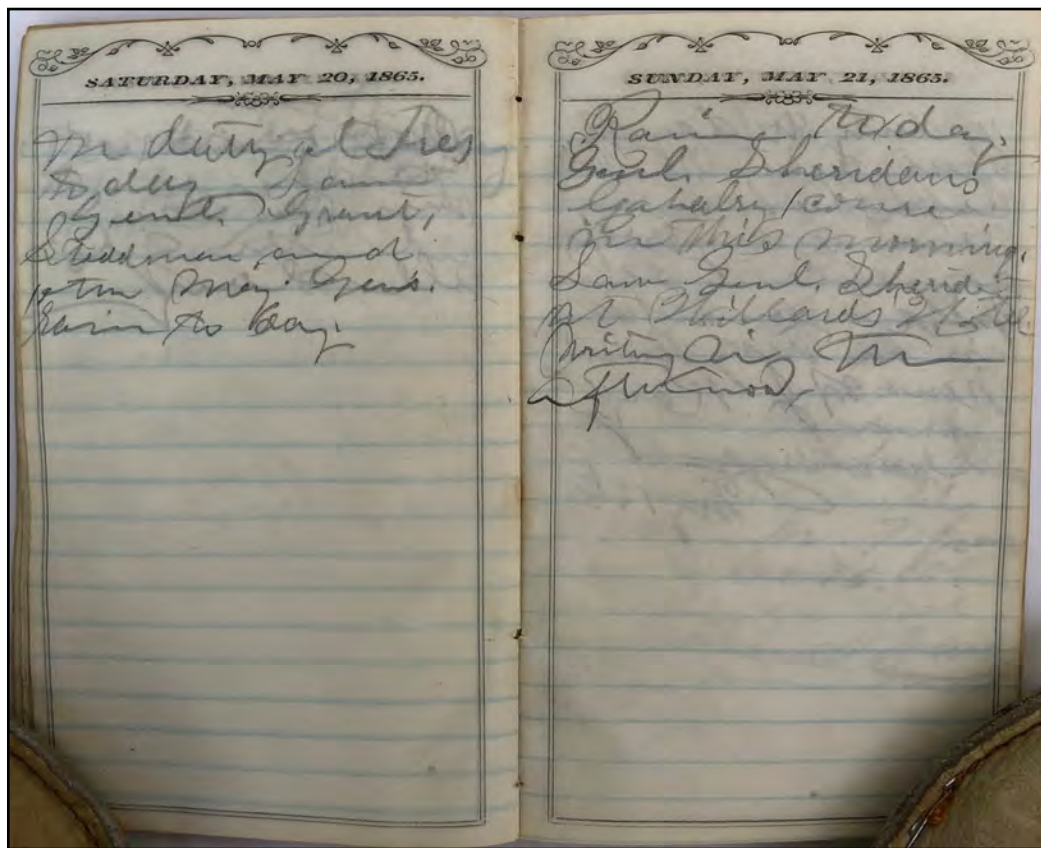 SATURDAY, MAY 20, 1865.
on duty at Tresy
to day Saw
Genl. Grant,
Steddman and
other Maj. Gens.
Rain to day.
SUNDAY, MAY 21, 1865.
Raining to day.
Genl. Sheridans
Cavalry come
in this morning.
Saw Genl. Sherid
at Willards Hotel
this
afternoon.